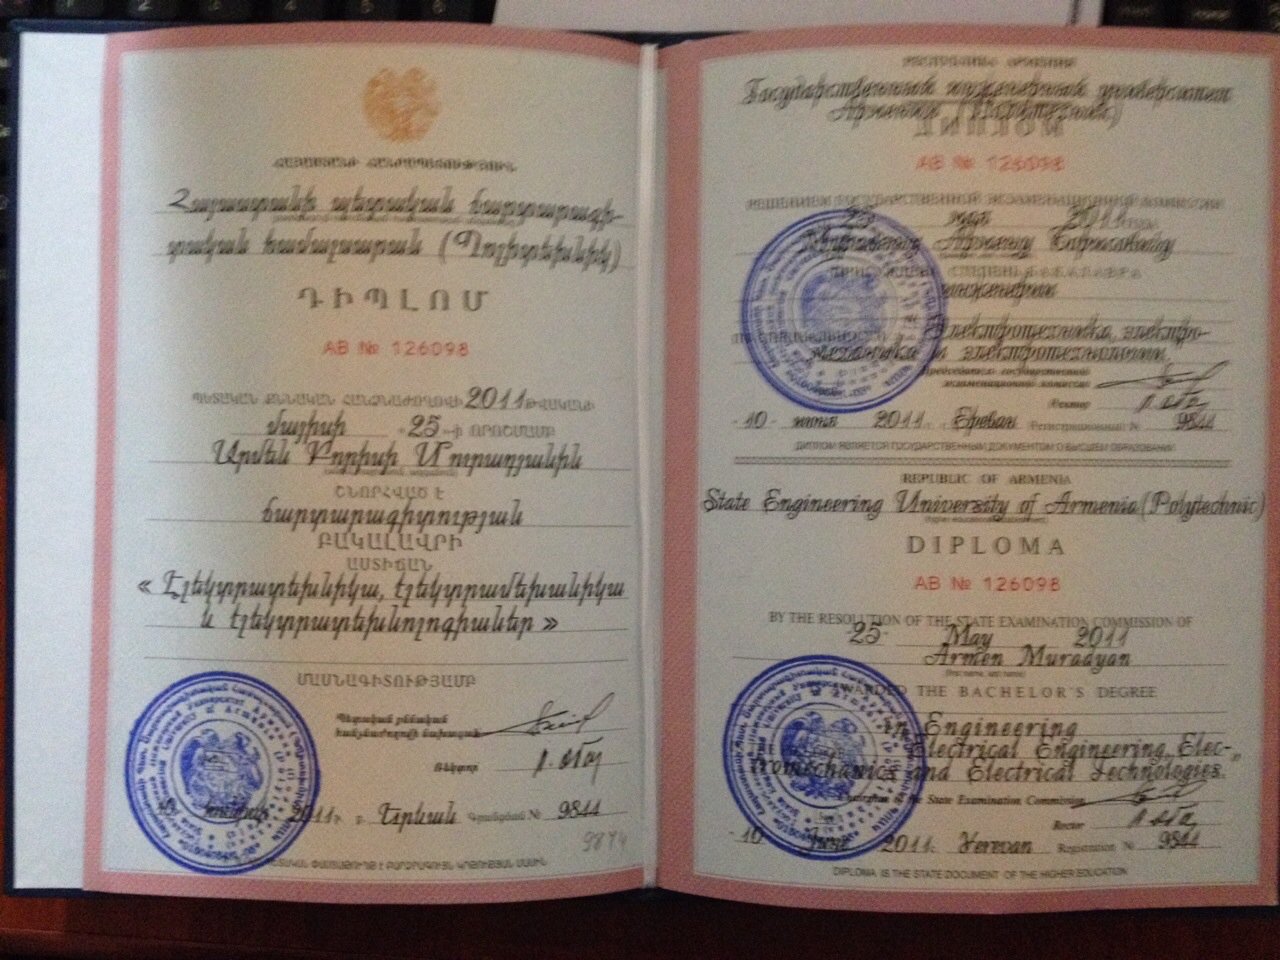 ՀԱՅԱՍՏԱՆԻ ՀԱՆՐԱՊԵՏՈՒԹՅՈՒՆ
Հայաստանի պետական ճարտարագի-
տական համալսարան (Պոլիտեխնիկ)
ԴԻՊԼՈՄ
AB № 126098
ՊԵՏԱԿԱՆ ՔՆՆԱԿԱՆ ՀԱՆՁՆԱԺՈՂՈՎԻ 2011 ԹՎԱԿԱՆԻ
մայիսի «25»-Ի ՈՐՈՇՄԱՄԲ
Արմեն Բորիսի Մուրադյանին
ՇՆՈՐՀՎԱԾ Է
ճարտարագիտության
ԲԱԿԱԼԱՎՐԻ
ԱՍՏԻՃԱՆ
« Էլեկտրատեխնիկա, էլեկտրամեխանիկա
և էլեկտրատեխնոլոգիաներ »
ՄԱՍՆԱԳԻՏՈՒԹՅԱՄԲ
Պետական քննական
հանձնաժողովի նախագահ
Ռեկտոր
10 հունիսի 2011թ. ք. Երևան Գրանցման № 9844
9844
РЕСПУБЛИКА АРМЕНИЯ
Государственный инженерный университет
Армении (Политехник)
ДИПЛОМ
AB № 126098
РЕШЕНИЕМ ГОСУДАРСТВЕННОЙ ЭКЗАМЕНАЦИОННОЙ КОМИССИИ
25 мая 2011
Мурадяну Армену Борисовичу
ПРИСУЖДЕНА СТЕПЕНЬ БАКАЛАВРА
инженерии
ПО СПЕЦИАЛЬНОСТИ Электротехника, электро-
механика и электротехнологии
Председатель государственной
экзаменационной комиссии
Ректор
-10- июня 2011 г. Ереван Регистрационный № 9844
ДИПЛОМ ЯВЛЯЕТСЯ ГОСУДАРСТВЕННЫМ ДОКУМЕНТОМ О ВЫСШЕМ ОБРАЗОВАНИИ
REPUBLIC OF ARMENIA
State Engineering University of Armenia (Polytechnic)
DIPLOMA
AB № 126098
BY THE RESOLUTION OF THE STATE EXAMINATION COMMISSION OF
-25- May 2011
Armen Muradyan
AWARDED THE BACHELOR'S DEGREE
in Engineering
Electrical Engineering, Elec-
tromechanics and Electrical Technologies.
Chairman of the State Examination Commission
Rector
-10- June 2011 Yerevan Registration № 9844
DIPLOMA IS THE STATE DOCUMENT OF THE HIGHER EDUCATION